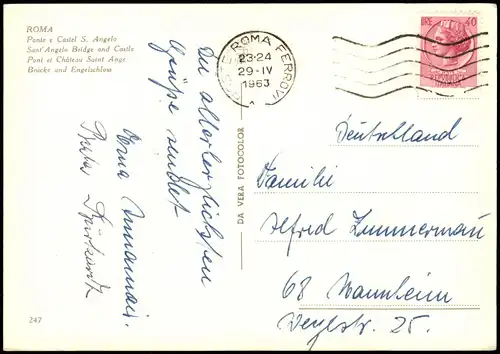 ROMA
Ponte e Castel S. Angelo
Sant'Angelo Bridge and Castle
Pont et Château Saint Ange
Brücke und Engelschloss
ROMA FERROVIA
23-24
29-IV
1963
LIRE 40
ITALIANA
Die allerherzlichsten
Grüße sendet
Erna
DA VERA FOTOCOLOR
Deutschland
Familie
Alfred Zimmermann
68 Mannheim
25.
247